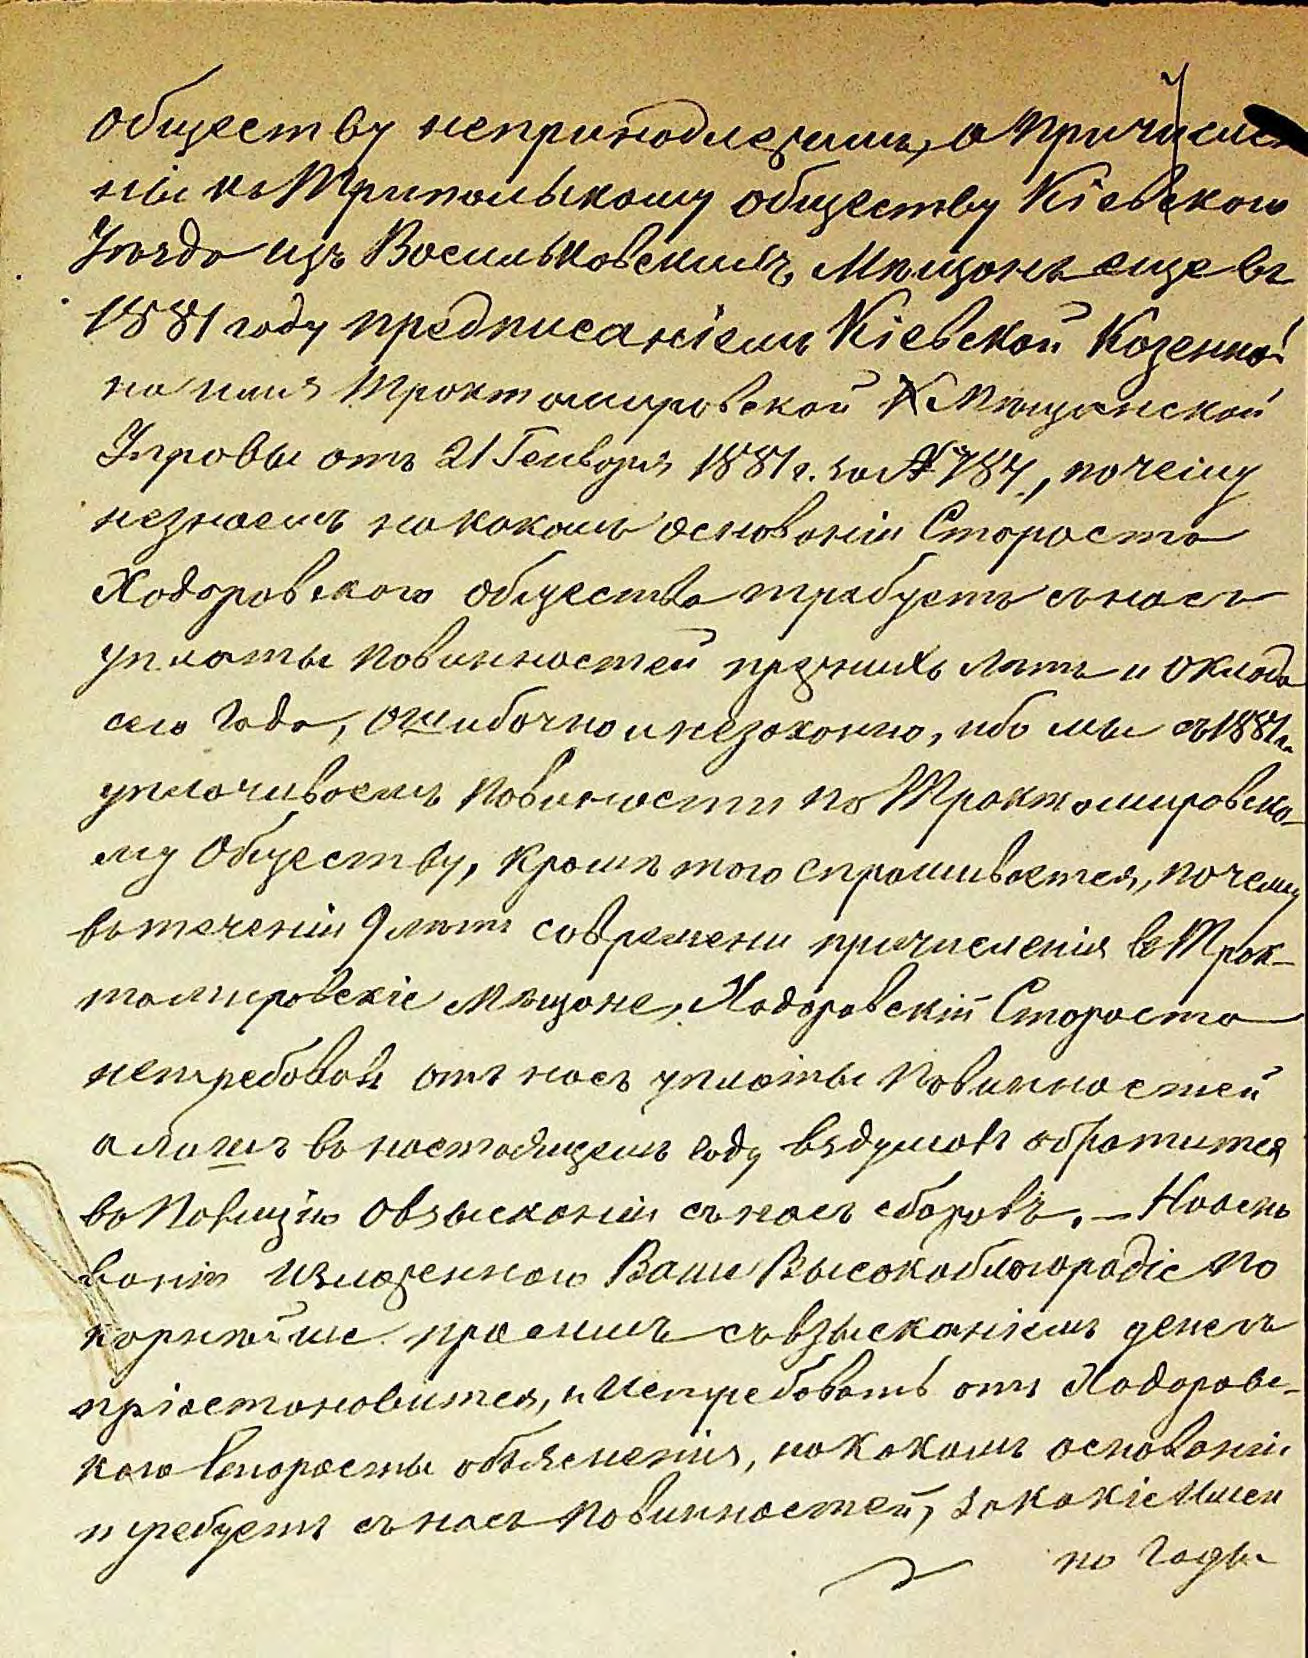 обществу непринадлежимъ, а причислен
ны къ Трипольскому обществу Кіевского
Уѣзда изъ Васильковскихъ Мѣщанъ еще въ
1881 году предписаніемъ Кіевской Козенной
на имя Трактомировской Мѣщанской
Управы отъ 21 Генворя 1881 г. за № 784, почему
незнаемъ на какомъ основаніи Староста
Ходоровского общества требуетъ съ насъ
уплаты повинностей прежнихъ лѣтъ и оклада
сего года, ошибочно и незаконно, ибо мы съ 1881 г.
уплачиваемъ повиности по Трактомировско-
му Обществу, кромѣ того спрашивается, почему
въ теченіи 9 лѣтъ современи причисленія въ Трак-
томировскіе мѣщане, Ходоровскій Староста
нетребовалъ отъ насъ уплаты повинностей
а лишъ въ настоящемъ году вздумалъ обратится
въ Полицію о взысканіи съ насъ сборовъ. — На осно
ваніи изложенного Ваше Высокоблогородіе по
корнѣйше просимъ съ взысканіемъ денегъ
пріостановится, и истребовать отъ Ходоровс-
кого Старосты объясненія, на какомъ основаніи
требуетъ съ насъ повинностей, за какіе имен
но годы